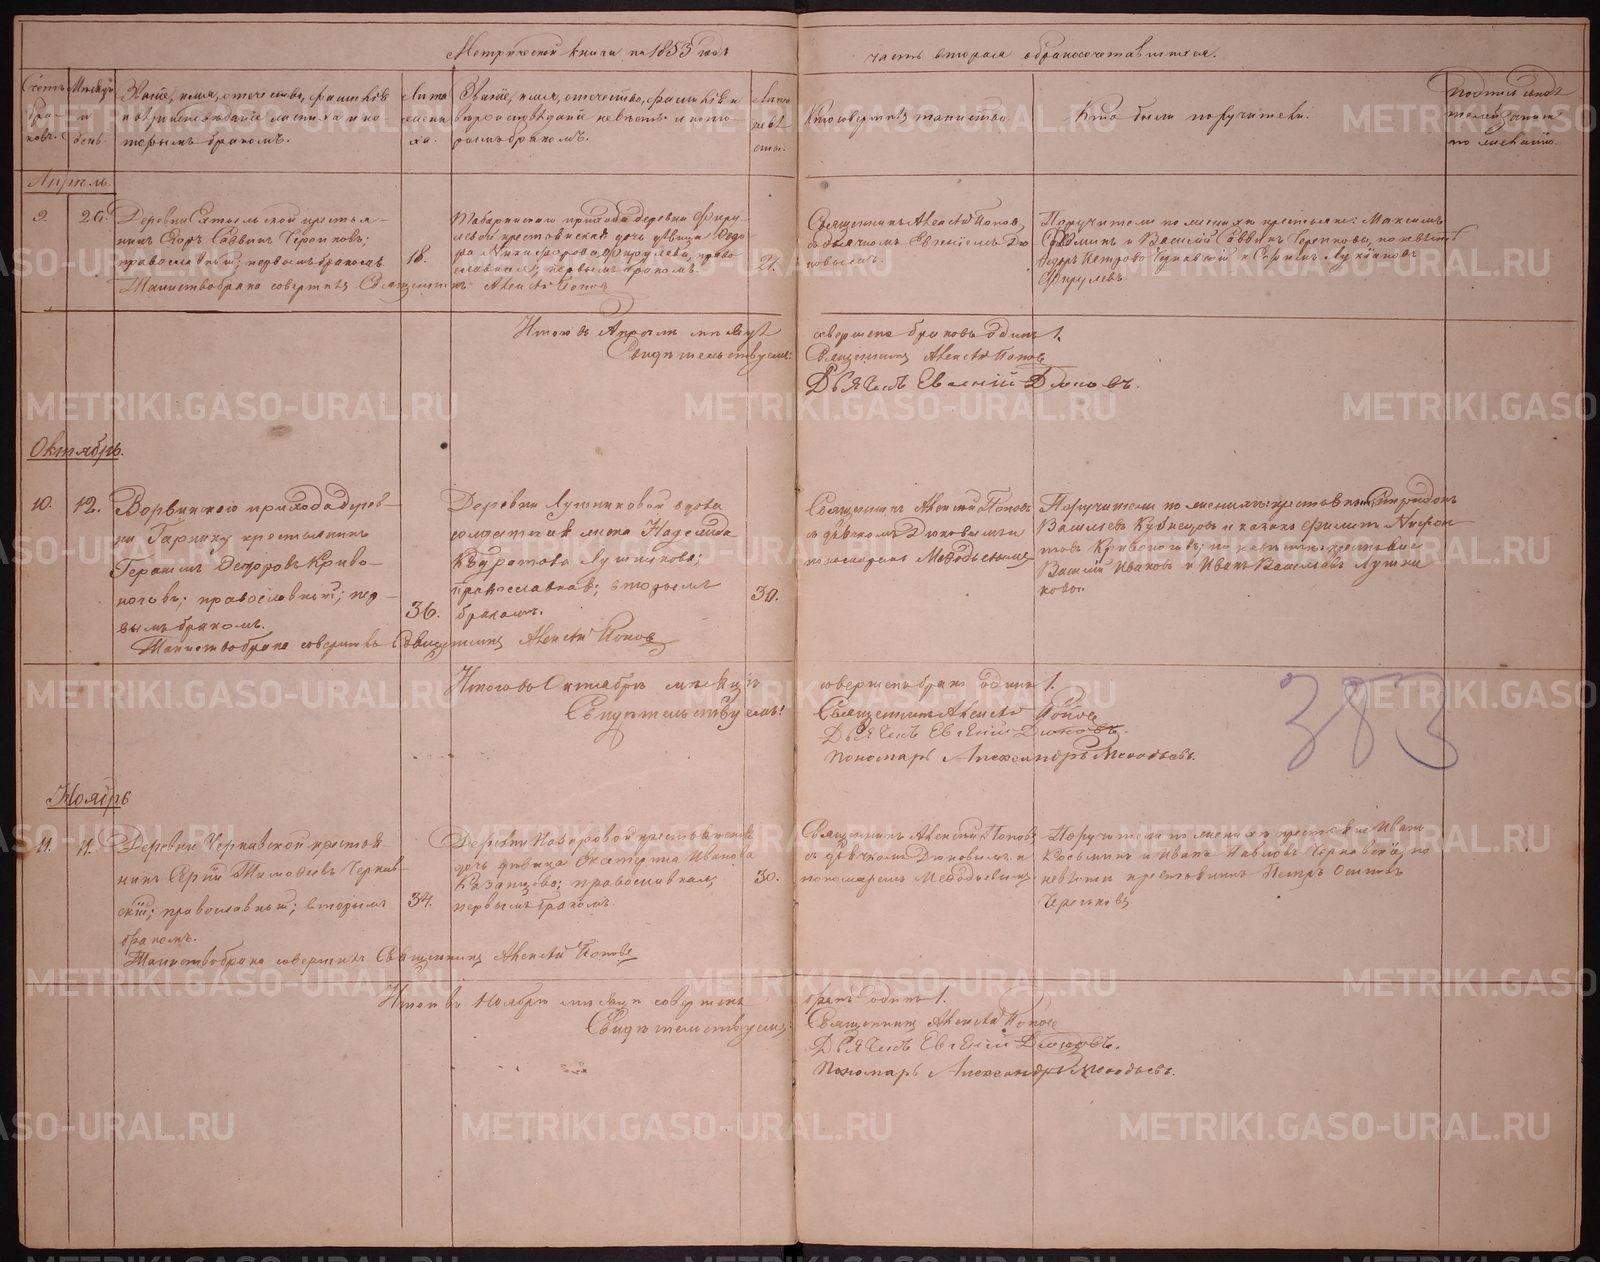 Метрической книги на 1853 годъ
часть вторая о бракосочетавшихся.
Счетъ браковъ.
Мѣсяцъ и день.
Званіе, имя, отечество, фамилія
и вѣроисповѣданіе жениха и ко-
торымъ бракомъ.
Лѣта жени-
ха.
Званіе, имя, отечество, фамилія и
вѣроисповѣданіе невѣсты и кото-
рымъ бракомъ.
Лѣта невѣ
сты.
Кто совершалъ таинство
Кто были поручители.
Подпись свидѣ
телей записи
по желанію.
Апрѣль
9.
Деревни крестья-
нинъ Савинъ
православный; первымъ бракомъ.
18.
Табаринскаго прихода деревни Фиру-
левой крестьянская дочь дѣвица Ѳедо-
ра Никифорова Фирулева, право-
славная; первымъ бракомъ.
21.
Священникъ Алексій Поповъ,
съ дьячкомъ Евгеніемъ Дю
ковымъ.
Поручители по женихѣ крестьяне: Максимъ
и Василій Саввинъ по невѣстѣ
Петровъ и Лукіановъ
Фирулевъ.
Таинство брака совершалъ Священникъ Алексій Поповъ
Итого въ Апрѣлѣ мѣсяцѣ
совершенъ бракъ одинъ 1.
Свидѣтельствуемъ:
Священникъ Алексій Поповъ
Дьячекъ Евгеній Дюковъ.
Октябрь.
10.
12.
прихода дерев-
ни крестьянинъ
Герасимъ Ѳедоровъ Криво-
ноговъ; православный; пер-
вымъ бракомъ.
36.
Деревни Лушниковой вдова
солдатская жена Надежда
Лушникова;
православная; вторымъ
бракомъ.
30.
Священникъ Алексій Поповъ
съ дьячкомъ Дюковымъ и
пономаремъ Меѳодьевымъ
Поручители по женихѣ: крестьянинъ Спиридонъ
Васильевъ Кузнецовъ и Филипъ
Кривоноговъ; по невѣстѣ: крестьяне
Василій Ивановъ и Иванъ Васильевъ Лушни
ковы.
Таинство брака совершалъ Священникъ Алексій Поповъ
Итого въ Октябрѣ мѣсяцѣ
совершенъ бракъ одинъ 1.
Свидѣтельствуемъ:
Священникъ Алексій Поповъ
Дьячекъ Евгеній Дюковъ.
Пономарь Александръ Меѳодьевъ.
383
Ноябрь
11.
11.
Деревни Чернавской крестья
нинъ Тимоѳеевъ Чернав-
скій; православный; вторымъ
бракомъ.
34.
Деревни крестьянская
дочь дѣвица Екатерина Иванова
Казанцова; православная;
первымъ бракомъ.
30.
Священникъ Алексій Поповъ
съ дьячкомъ Дюковымъ и
пономаремъ Меѳодьевымъ
Поручители по женихѣ крестьяне Иванъ
Косминъ и Иванъ Павловъ Чернавскіе, по
невѣстѣ крестьянинъ Петръ Осиповъ
Таинство брака совершалъ Священникъ Алексій Поповъ
Итого въ Ноябрѣ мѣсяцѣ совершенъ
бракъ одинъ 1.
Свидѣтельствуемъ:
Священникъ Алексій Поповъ
Дьячекъ Евгеній Дюковъ.
Пономарь Александръ Меѳодьевъ.
METRIKI.GASO-URAL.RU